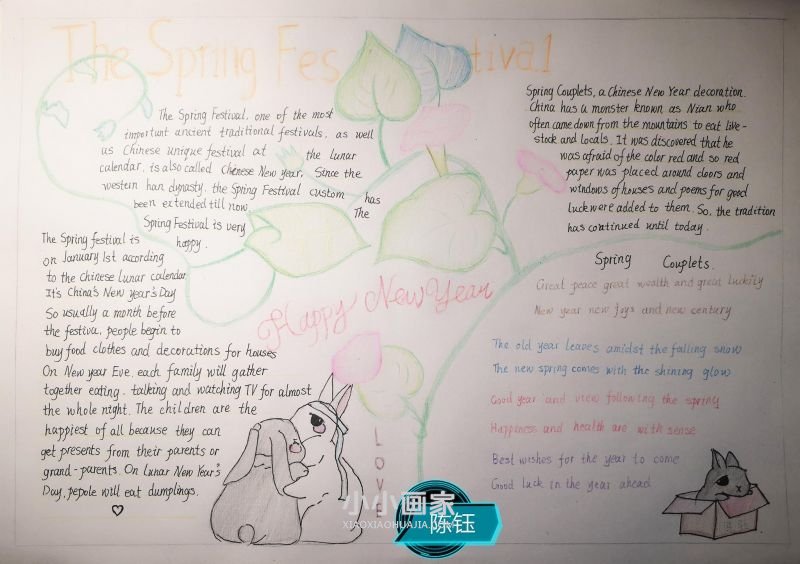 The Spring Fes tival
The Spring Festival, one of the most
important ancient traditional festivals, as well
as Chinese unique festival at the lunar
calendar, is also called Chinese New Year. Since the
western han dynasty, the Spring Festival custom has
been extended till now. The
Spring Festival is very
happy.
The Spring festival is
on January 1st according
to the Chinese lunar calendar
It's China's New year's Day
So usually a month before
the festiva, people begin to
buy food clothes and decorations for houses
On New year Eve, each family will gather
together eating, talking and watching TV for almost
the whole night. The children are the
happiest of all because they can
get presents from their parents or
grand-parents. On Lunar New Year's
Day, pepole will eat dumplings.
Happy New Year
LOVE
Spring Couplets, a Chinese New Year decoration.
China has a monster known as Nian who
often came down from the mountains to eat live-
stock and locals. It was discovered that he
was afraid of the color red and so red
paper was placed around doors and
windows of houses and poems for good
luck were added to them. So, the tradition
has continued until today.
Spring Couplets.
Great peace great wealth and great luckily
New year new joys and new century
The old year leaves amidst the falling snow
The new spring comes with the shining glow
Good year and view following the spring
Happeness and health are with sense
Best wishes for the year to come
Good luck in the year ahead
小小画家
XIAOXIAOHUAJIA.COM
陈钰